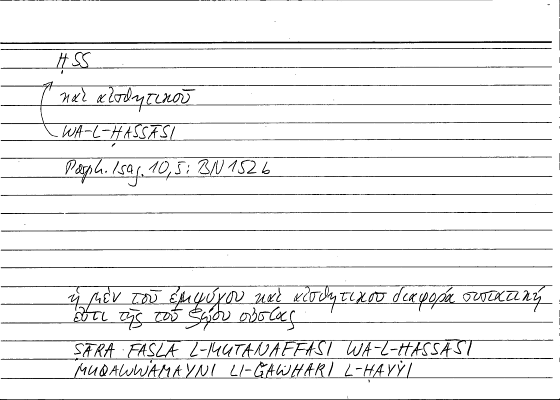 ḤSS
καὶ αἰσθητικοῦ
WA-L-ḤASSĀSI
Porph. Isag. 10,5; BN 152 b
ἡ μὲν τοῦ ἐμψύχου καὶ αἰσθητικοῦ διαφορὰ συστατική
ἐστι τῆς τοῦ ζῴου οὐσίας
ṢĀRA FAṢLĀ L-MUTANAFFASI WA-L-ḤASSĀSI
MUQAWWAMAYNI LI-ǦAWHARI L-ḤAYYI